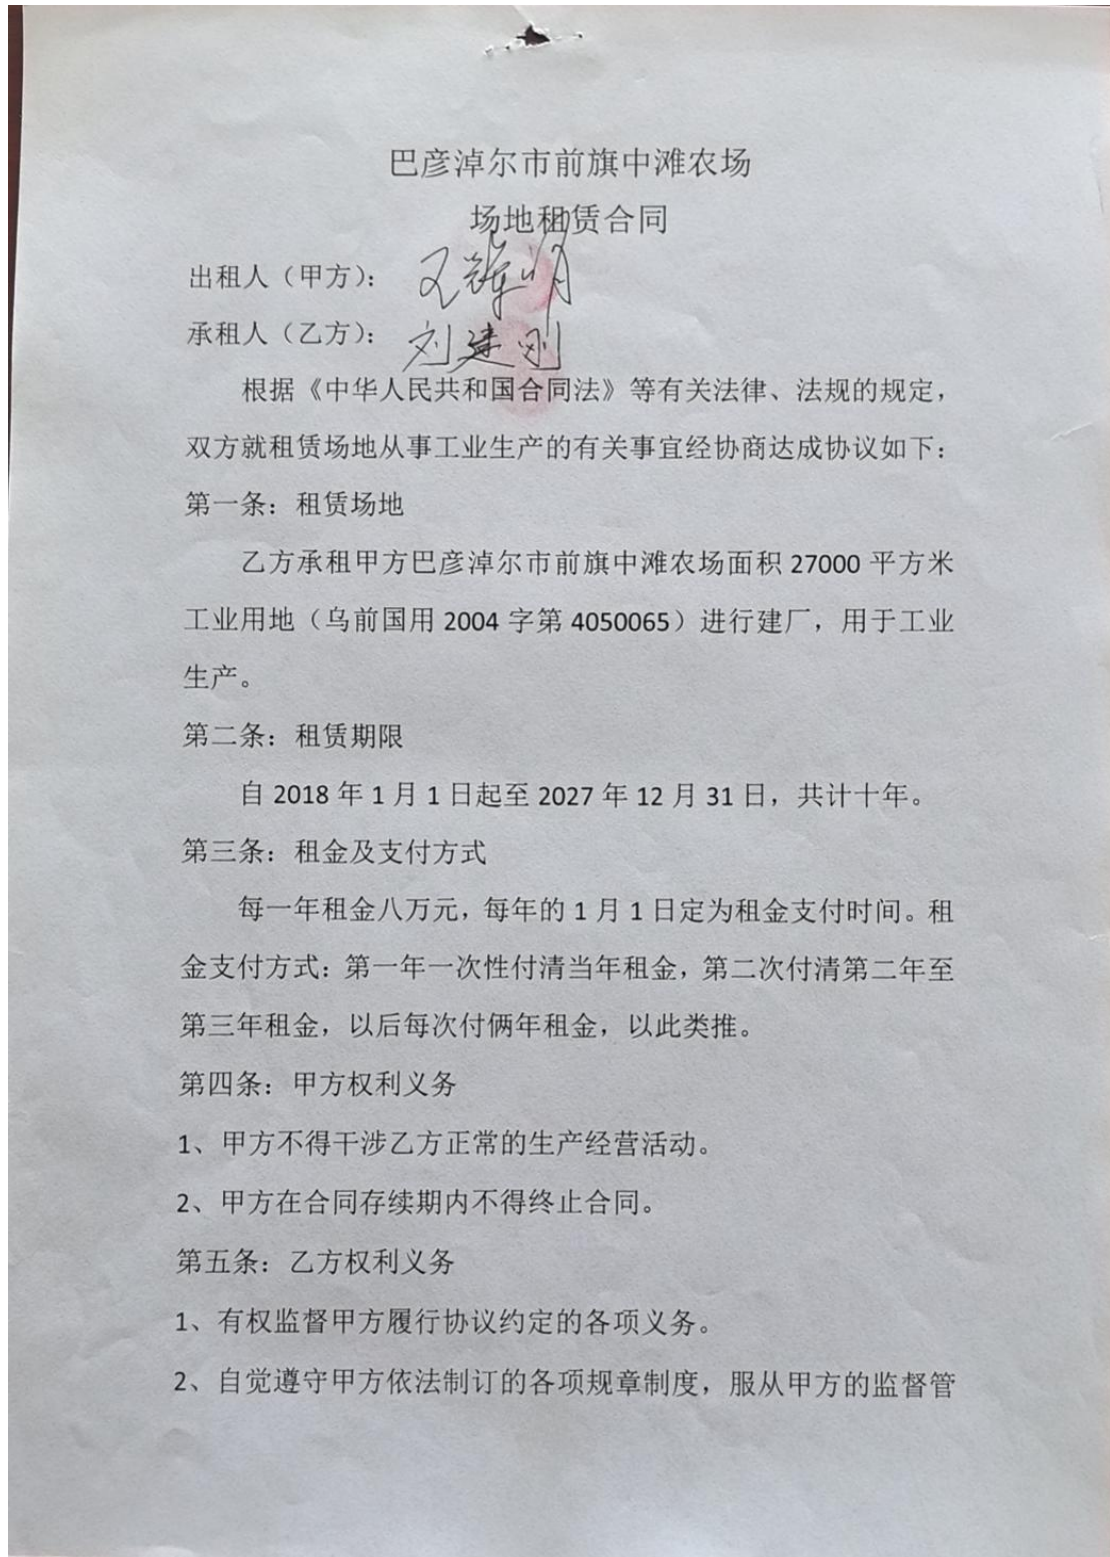 巴彦淖尔市前旗中滩农场
场地租赁合同
出租人（甲方）：王辉明
承租人（乙方）：刘建刚
根据《中华人民共和国合同法》等有关法律、法规的规定，
双方就租赁场地从事工业生产的有关事宜经协商达成协议如下：
第一条：租赁场地
乙方承租甲方巴彦淖尔市前旗中滩农场面积 27000 平方米
工业用地（乌前国用 2004 字第 4050065）进行建厂，用于工业
生产。
第二条：租赁期限
自 2018 年 1 月 1 日起至 2027 年 12 月 31 日，共计十年。
第三条：租金及支付方式
每一年租金八万元，每年的 1 月 1 日定为租金支付时间。租
金支付方式：第一年一次性付清当年租金，第二次付清第二年至
第三年租金，以后每次付俩年租金，以此类推。
第四条：甲方权利义务
1、甲方不得干涉乙方正常的生产经营活动。
2、甲方在合同存续期内不得终止合同。
第五条：乙方权利义务
1、有权监督甲方履行协议约定的各项义务。
2、自觉遵守甲方依法制订的各项规章制度，服从甲方的监督管